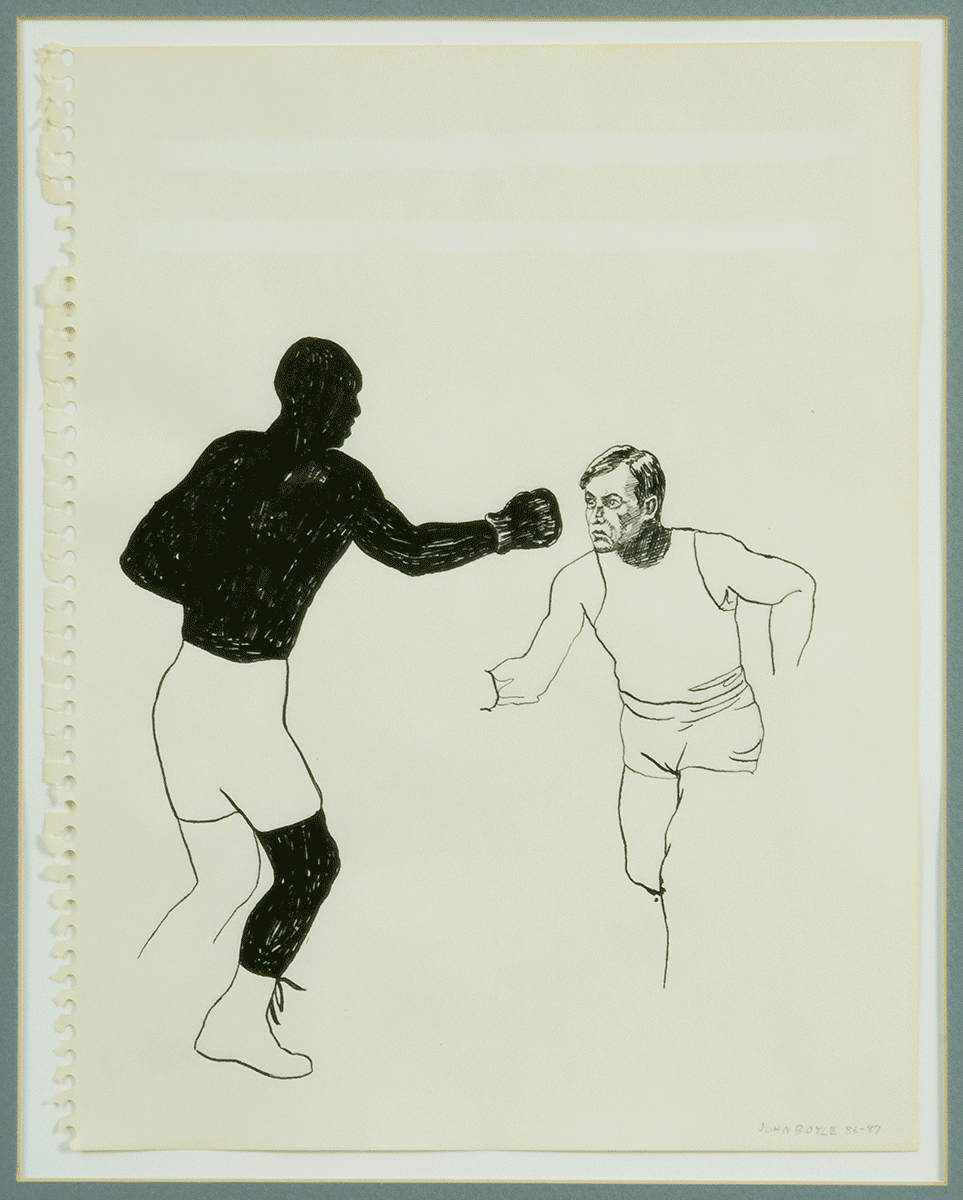 JOHN BOYLE 86-87